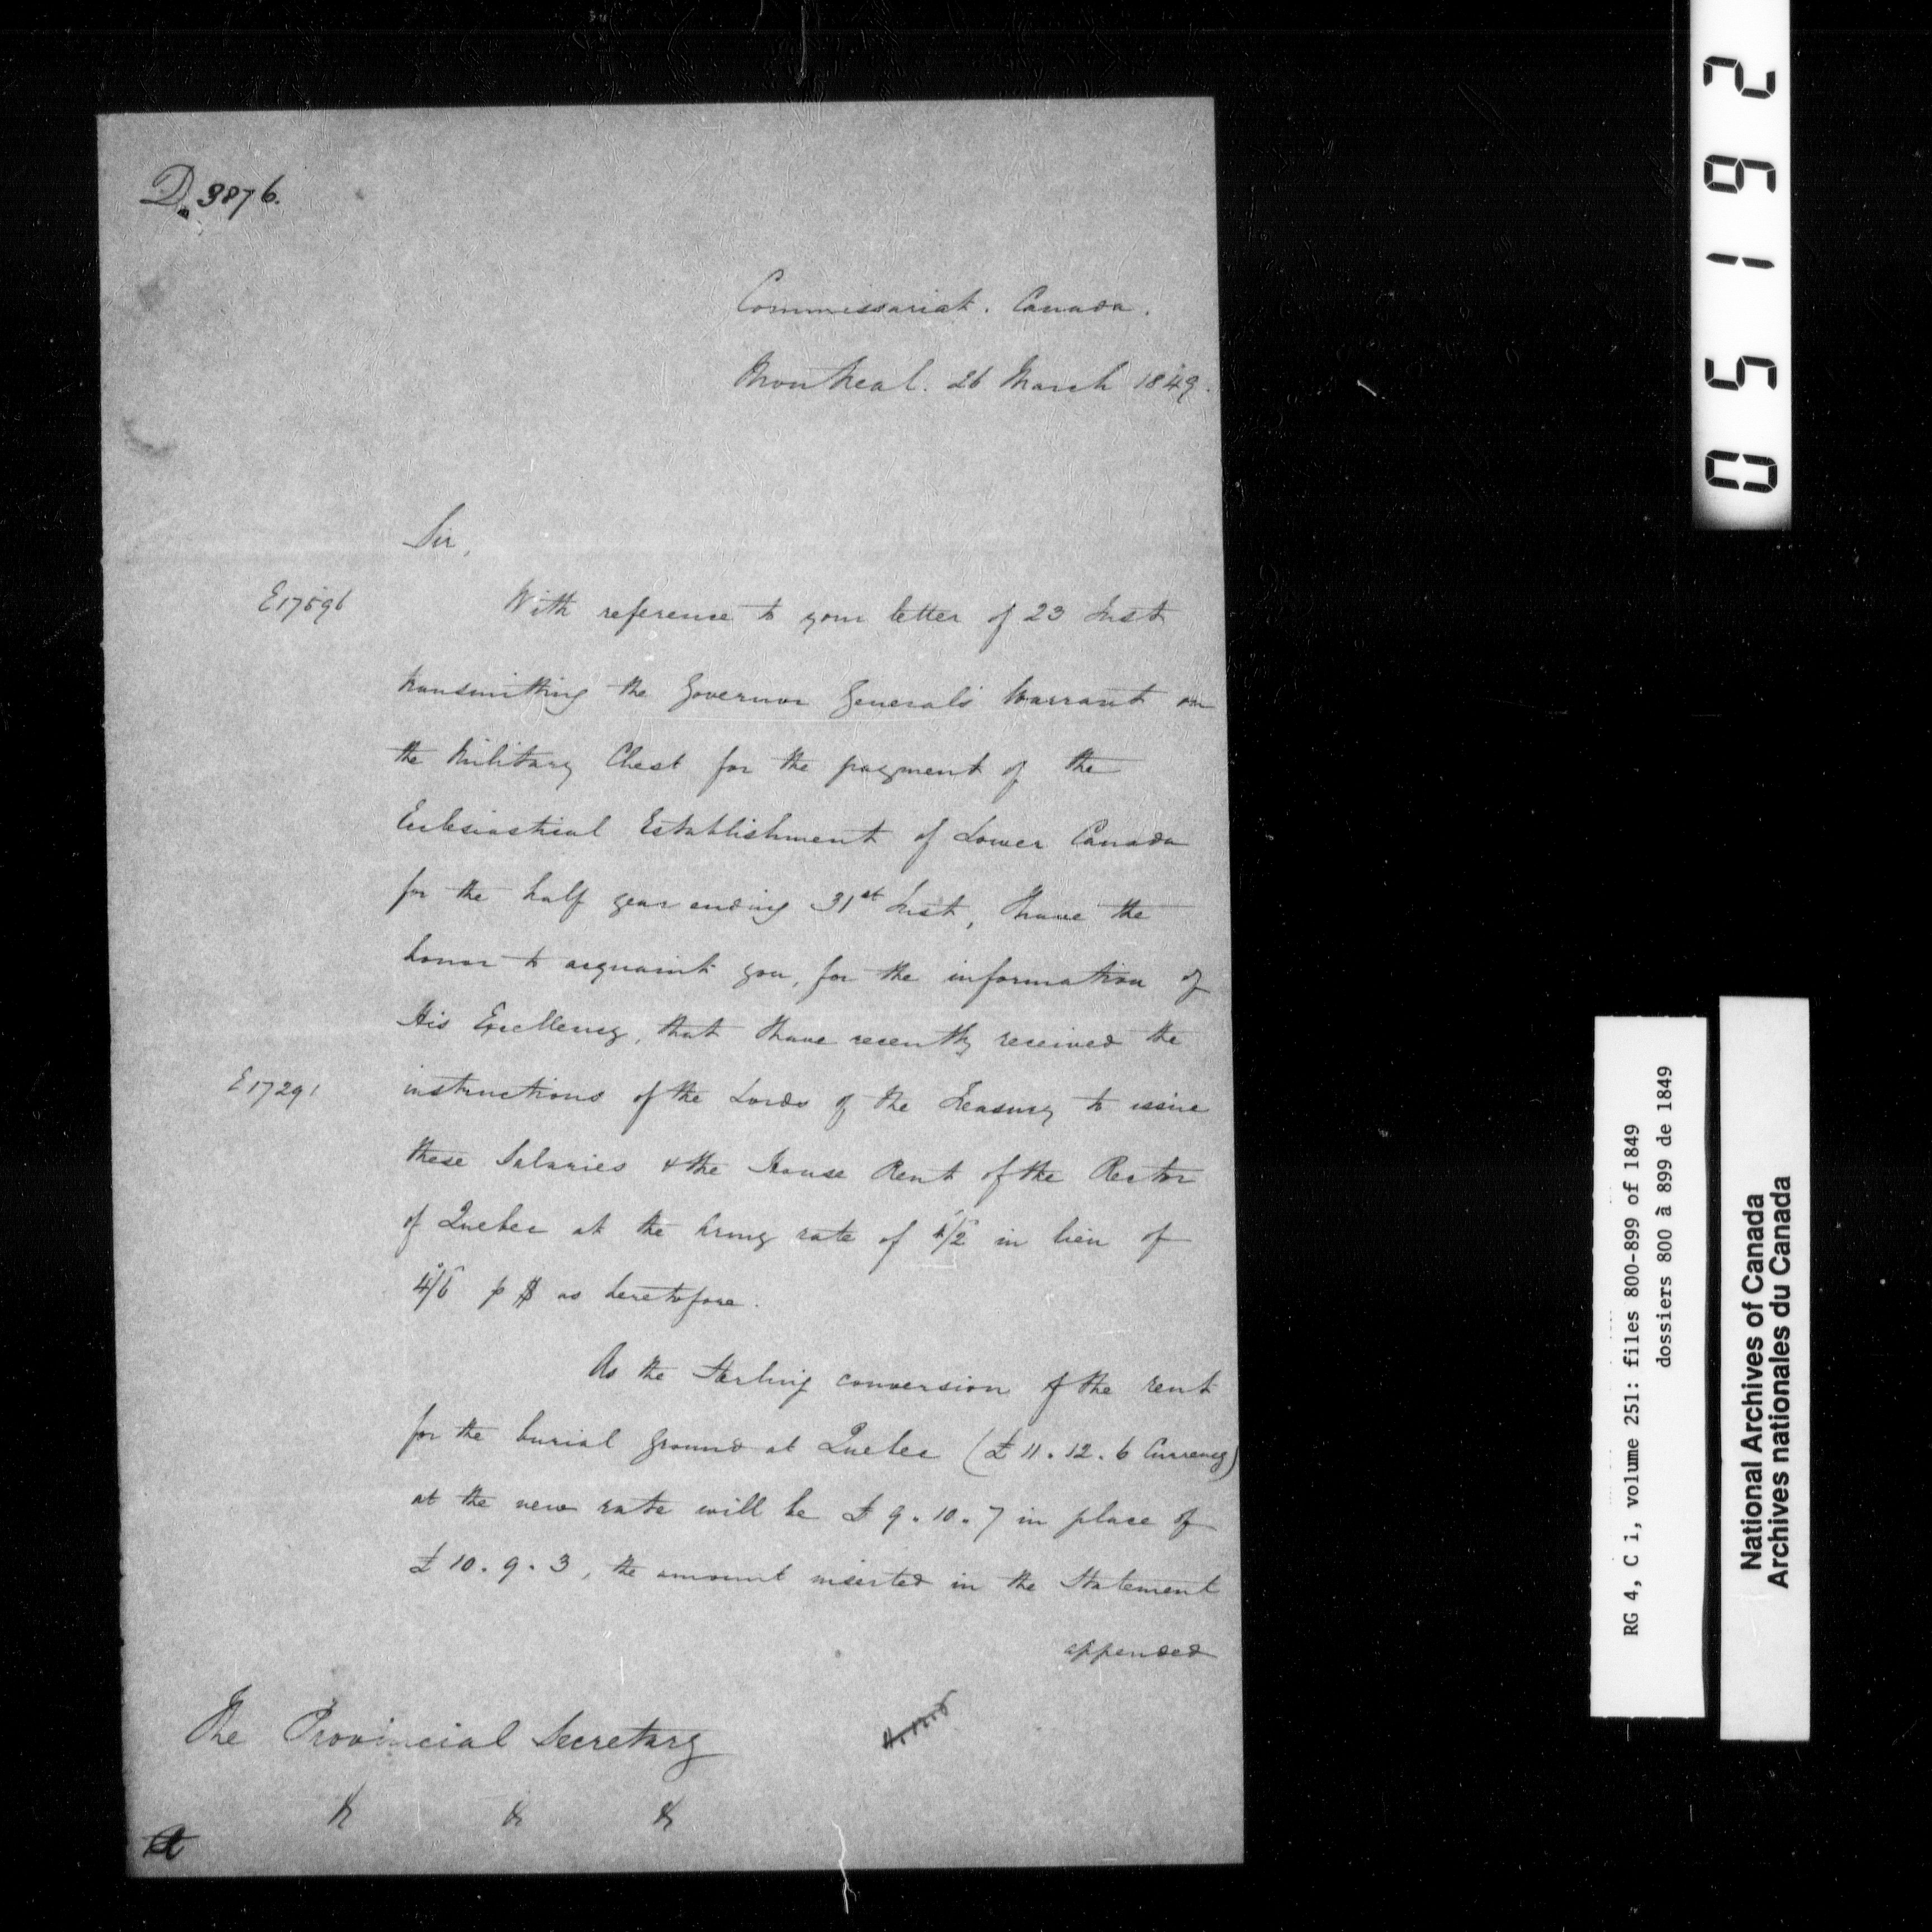 D. 3876.
Commissariat. Canada.
Montreal. 26 March 1849.
Sir,
E17596
With reference to your letter of 23 Inst
transmitting the Governor General's Warrant on
the Military Chest for the payment of the
Ecclesiastical Establishment of Lower Canada
for the half year ending 31st Inst, I have the
honor to acquaint you, for the information of
His Excellency, that I have recently received the
E17291
instructions of the Lords of the Treasury to issue
these Salaries & the House Rent of the Rector
of Quebec at the Army rate of 4/2 in lieu of
4/6 p $ as heretofore.
As the Sterling conversion of the rent
for the burial ground at Quebec (£ 11. 12. 6 Currency)
at the new rate will be £ 9. 10. 7 in place of
£ 10. 9. 3, the amount inserted in the Statement
appended
The Provincial Secretary
&c &c &c
05192
RG 4, C i, volume 251: files 800-899 of 1849
dossiers 800 à 899 de 1849
National Archives of Canada
Archives nationales du Canada